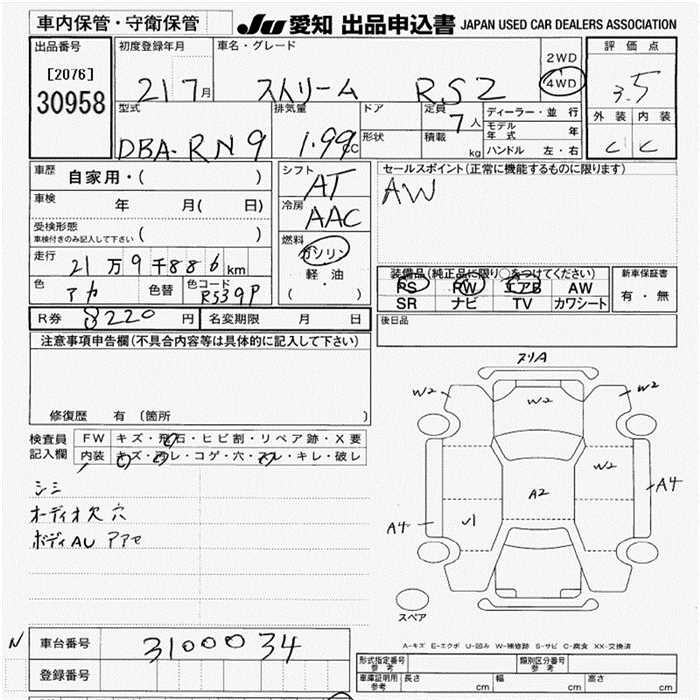 車内保管・守衛保管
JU 愛知 出品申込書 JAPAN USED CAR DEALERS ASSOCIATION
出品番号 初度登録年月 車名・グレード 2WD 評価点
[2076] 4WD
30958 21 7月 ストリーム RSZ 3.5
型式 排気量 ドア 定員 7人 ディーラー・並行 外装 内装
DBA-RN9 1.99cc 形状 積載 kg モデル年式 年 C C
ハンドル 左・右
車歴 自家用・( ) シフト AT セールスポイント(正常に機能するものに限ります)
車検 年 月( 日) 冷房 AAC AW
受検形態 ( )
車検付きのみ記入して下さい
燃料 ガソリン
走行 21万9千886km 軽・油 装備品(純正品に限り○をつけてください) 新車保証書
色 アカ 色替 色コード R539P ( ・ ) PS PW エアB AW 有・無
SR ナビ TV カワシート
R券 8220円 名変期限 月 日 後日品
注意事項申告欄(不具合内容等は具体的に記入して下さい)
修復歴 有 (箇所 )
検査員 FW キズ・飛石・ヒビ割・リペア跡・X要
記入欄 内装 キズ・ヨゴレ・コゲ・穴・スレ・キレ・破レ
シミ
オーディオ欠 穴
ボディAU アアセ
ヌリA
W2 W2 W2
W2
A2
A4
A4 U1
スペア
A-キズ E-エクボ U-凹み W-補修跡 S-サビ C-腐食 XX-交換済
N 車台番号 3100034
登録番号
形式指定番号 参考 類別区分番号 参考
車庫証明用 参考 長さ cm 幅 cm 高さ cm